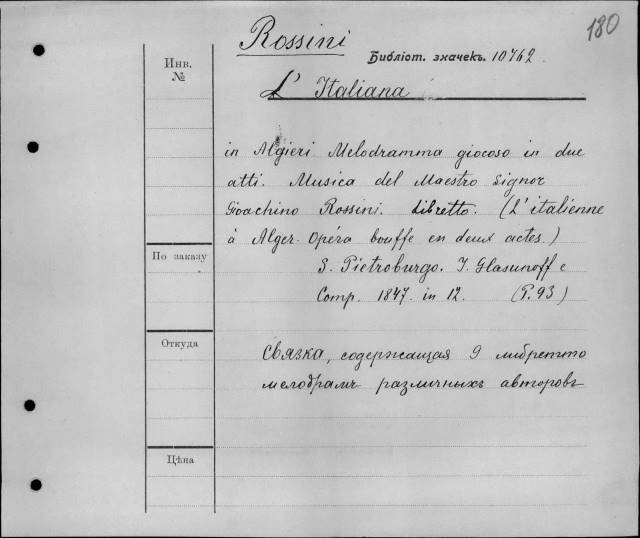 180
Rossini
Инв.
№
Библіот. значекъ. 10762.
L' Italiana
in Algieri Melodramma giocoso in due
atti. Musica del Maestro Signor
Gioachino Rossini. Libretto. (L'italienne
à Alger. Opéra bouffe en deux actes.)
По заказу
S. Pietroburgo. J. Glasunoff e
Comp. 1847. in 12. (P. 93)
Откуда
Связка, содержащая 9 либретто
мелодрамъ различныхъ авторовъ
Цѣна